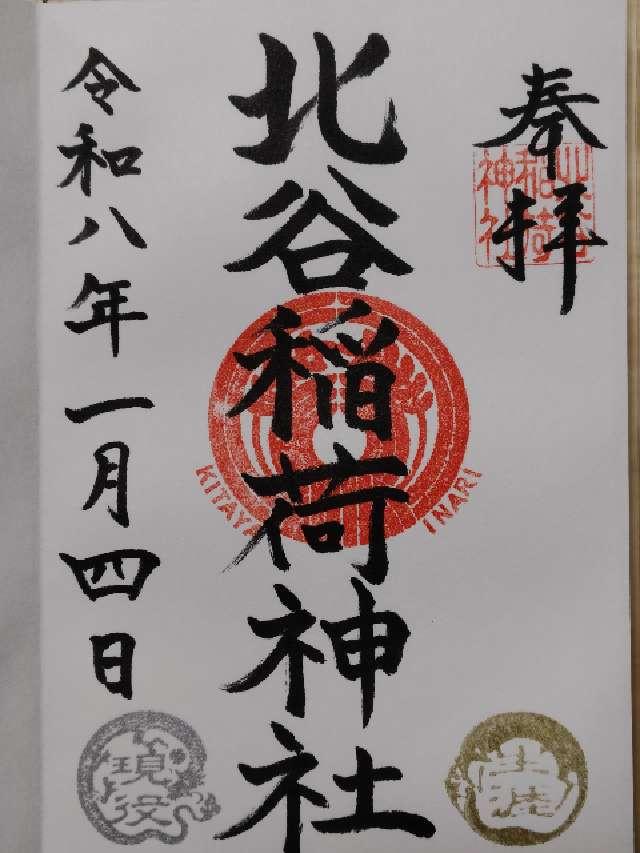 奉拝
北谷稲荷神社
北谷稲荷神社
KITAYA INARI
令和八年一月四日
生涯
現役